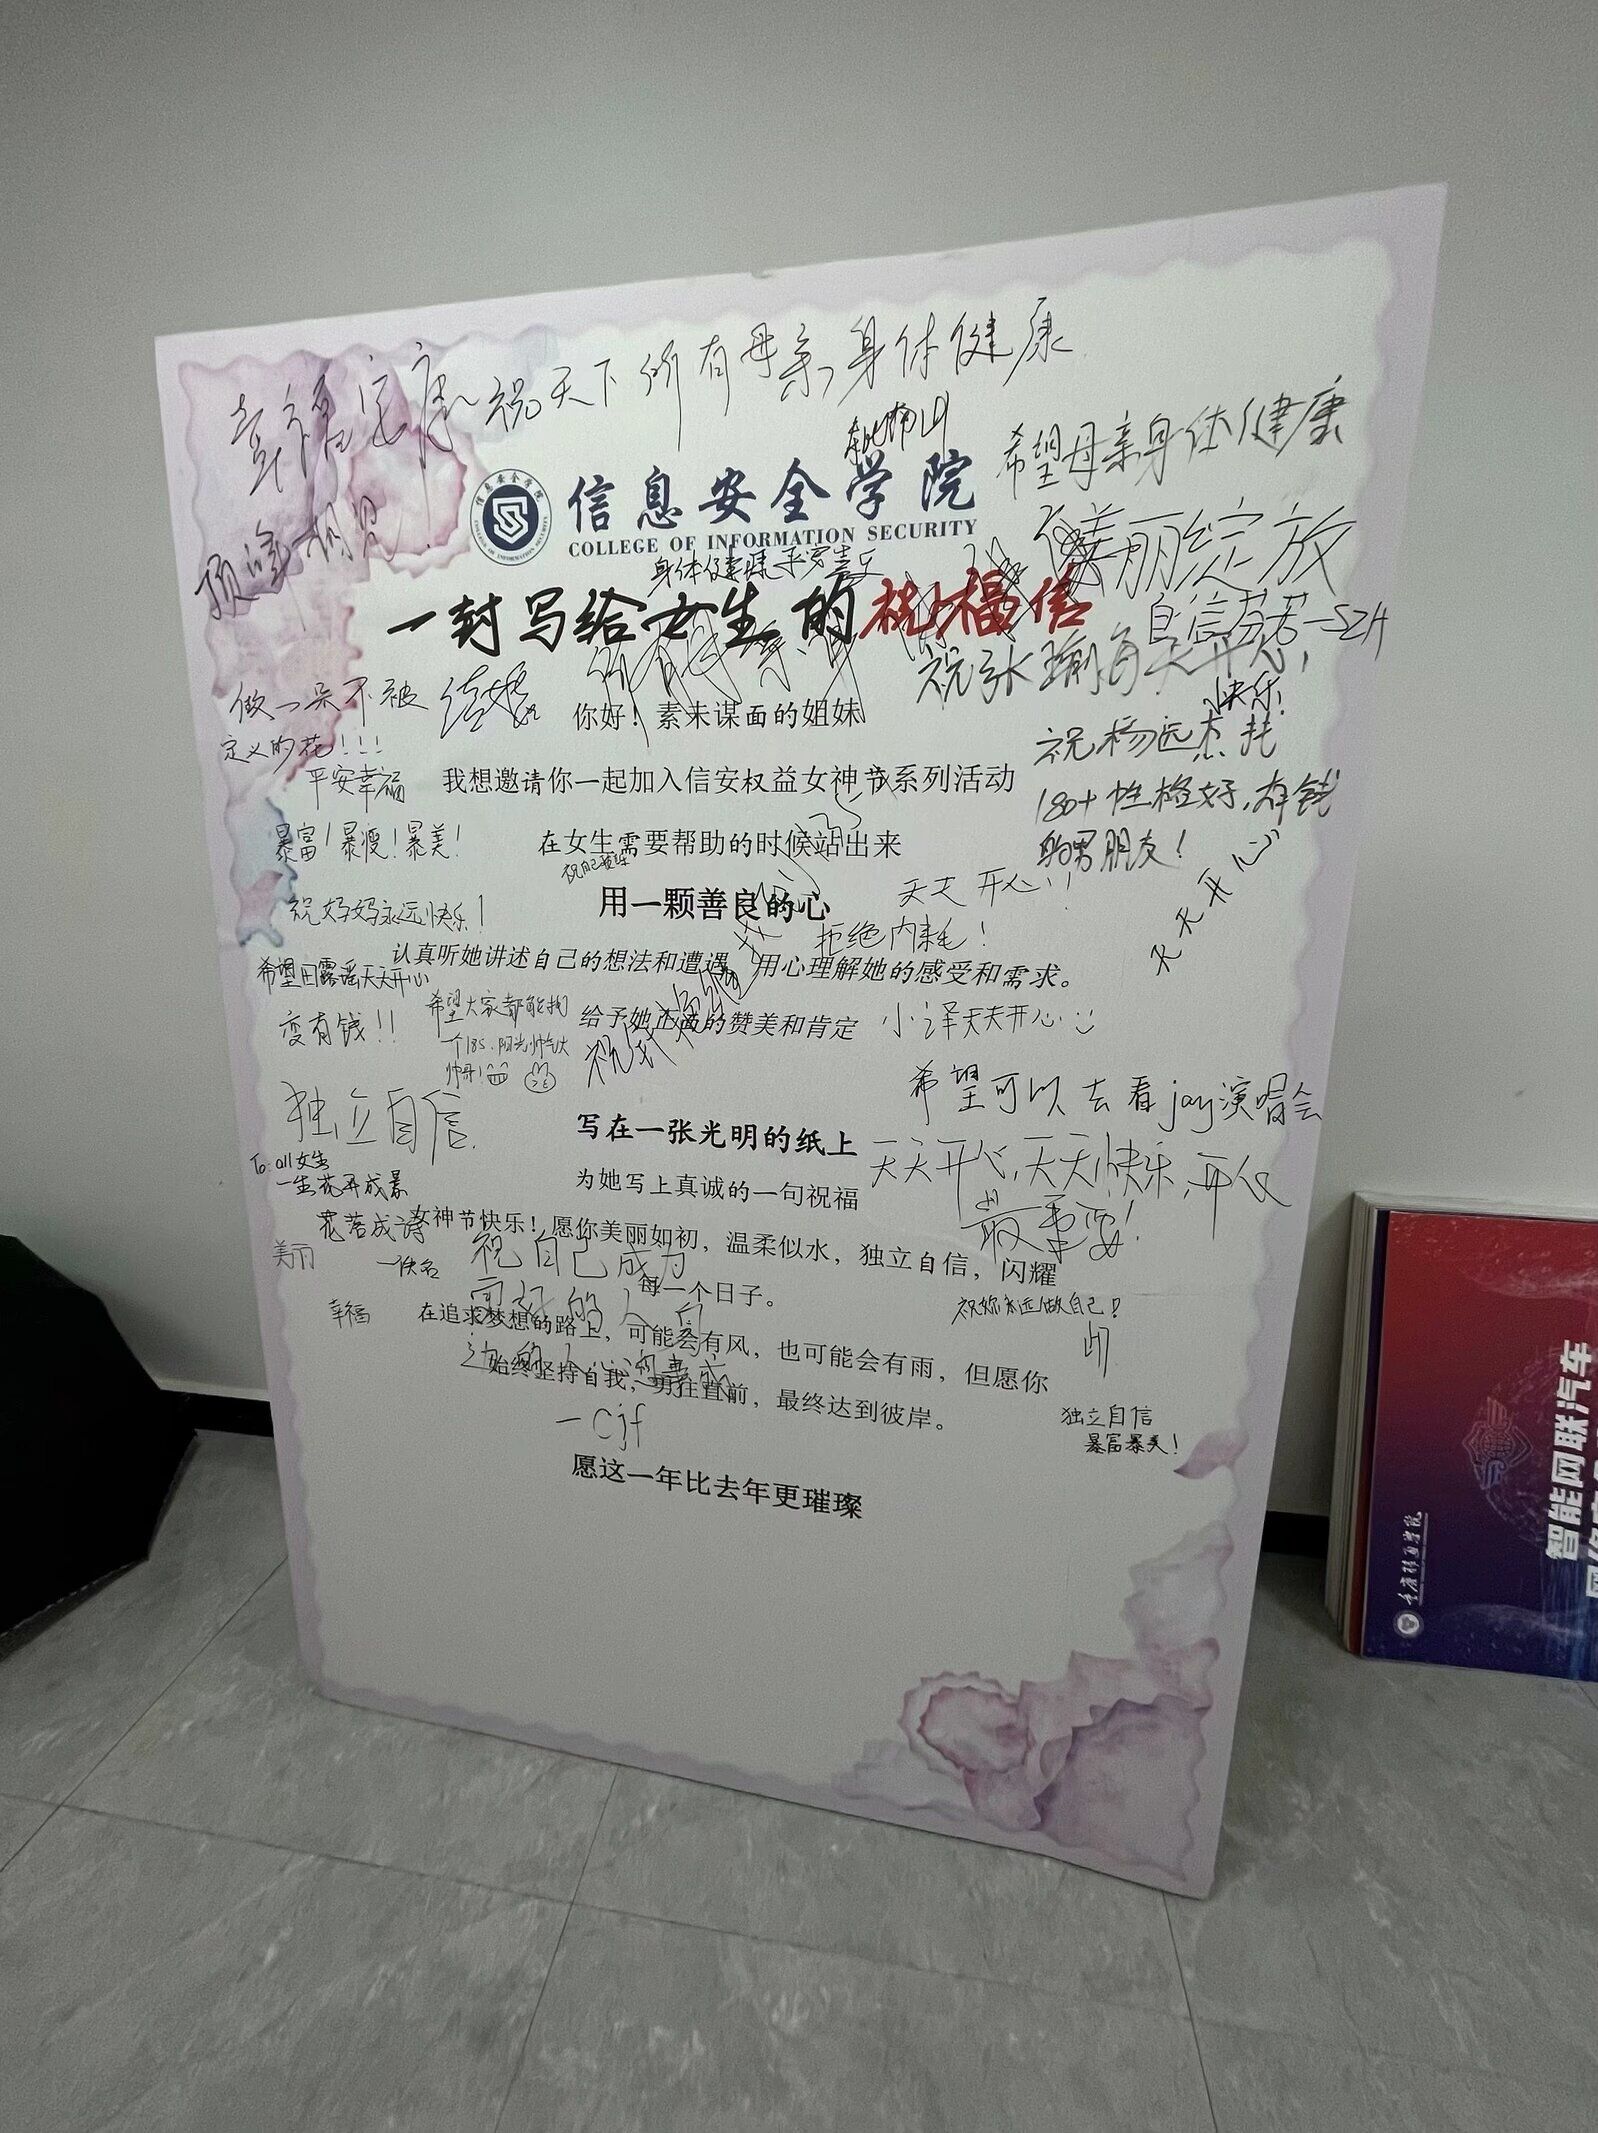 幸福安康
祝天下所有母亲,身体健康
希望母亲身体健康
顶峰相见
信息安全学院
COLLEGE OF INFORMATION SECURITY
身体健康
美丽绽放
自信芬芳-SZH
一封写给女生的祝福信
做一朵不被
定义的花!!!
你好!素未谋面的姐妹
快乐!
平安幸福
我想邀请你一起加入信安权益女神节系列活动
祝杨远杰找
180+性格好,有钱
的男朋友!
暴富!暴瘦!暴美!
在女生需要帮助的时候站出来
用一颗善良的心
天天开心!!
天天开心
祝妈妈永远快乐!
拒绝内耗!
认真听她讲述自己的想法和遭遇 用心理解她的感受和需求。
希望田露瑶天天开心
变有钱!!
希望大家都能找
个185.阳光帅气大
帅哥!
给予她正面的赞美和肯定
小泽天天开心
希望可以去看jay演唱会
独立自信
写在一张光明的纸上
天天开心,天天快乐,开心
最重要!
To:all女生
一生花开成景
花落成诗
一佚名
为她写上真诚的一句祝福
女神节快乐!愿你美丽如初,温柔似水,独立自信,闪耀
每一个日子。
美丽
祝自己成为
幸福
祝妳永远做自己!
在追求梦想的路上,可能会有风,也可能会有雨,但愿你
始终坚持自我,勇往直前,最终达到彼岸。
-Cjf
独立自信
暴富暴美!
愿这一年比去年更璀璨
智能网联汽车
重庆移通学院